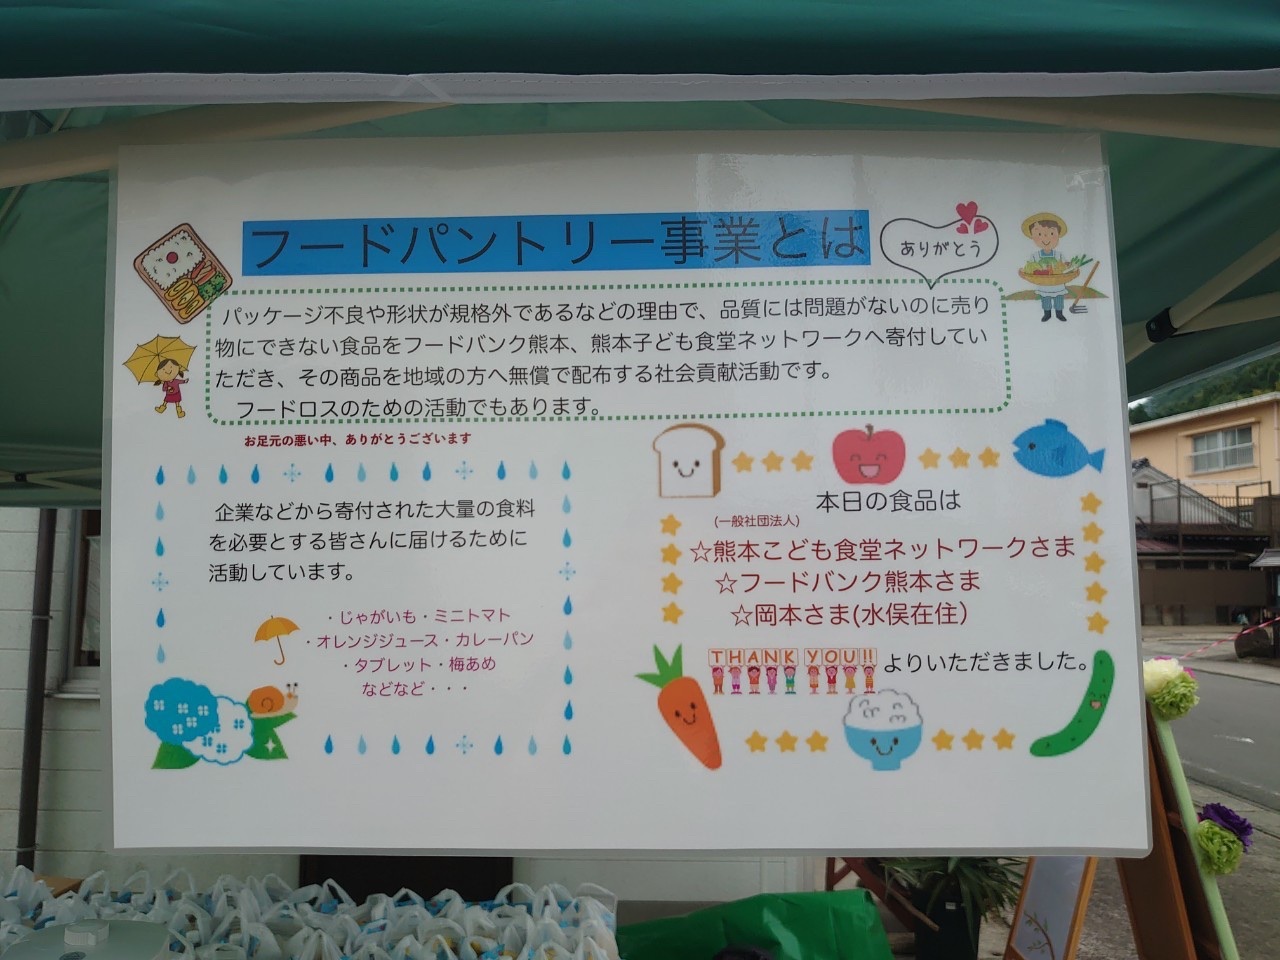 フードパントリー事業とは
ありがとう
パッケージ不良や形状が規格外であるなどの理由で、品質には問題がないのに売り
物にできない食品をフードバンク熊本、熊本子ども食堂ネットワークへ寄付してい
ただき、その商品を地域の方へ無償で配布する社会貢献活動です。
フードロスのための活動でもあります。
お足元の悪い中、ありがとうございます
企業などから寄付された大量の食料
を必要とする皆さんに届けるために
活動しています。
・じゃがいも・ミニトマト
・オレンジジュース・カレーパン
・タブレット・梅あめ
などなど・・・
本日の食品は
(一般社団法人)
☆熊本こども食堂ネットワークさま
☆フードバンク熊本さま
☆岡本さま(水俣在住)
THANK YOU!! よりいただきました。